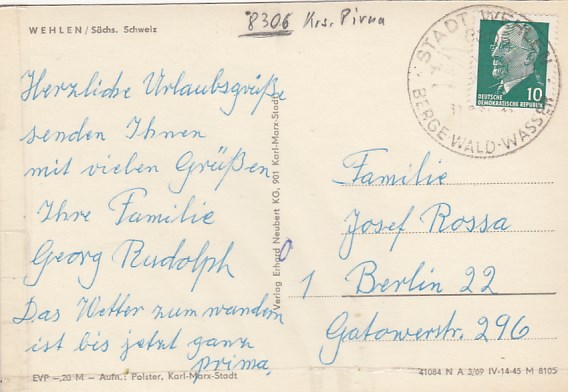 8306 Krs. Pirna
WEHLEN / Sächs. Schweiz
Herzliche Urlaubsgrüße
senden Ihnen
mit vielen Grüßen
Ihre Familie
Georg Rudolph
Das Wetter zum wandern
ist bis jetzt ganz
prima.
EVP -,20 M - Aufn.: Polster, Karl-Marx-Stadt
Verlag Erhard Neubert KG, 901 Karl-Marx-Stadt
STADT WEHLEN
BERGE-WALD-WASSER
10
DEUTSCHE
DEMOKRATISCHE REPUBLIK
Familie
Josef Rossa
1 Berlin 22
Gatowerstr. 296
41084 N A 3/69 IV-14-45 M 8105